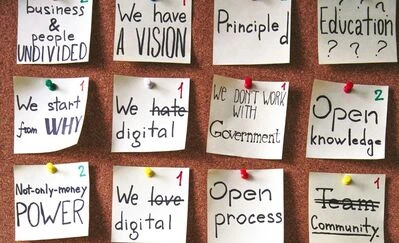 business &
people
UNDIVIDED
2
We have
A VISION
Principled
Education
? ? ?
1
We start
from WHY
1
We hate
digital
1
We DON'T WORK
WITH
Government
2
Open
knowledge
2
Not-only-money
POWER
1
We love
digital
Open
process
1
Team
Community